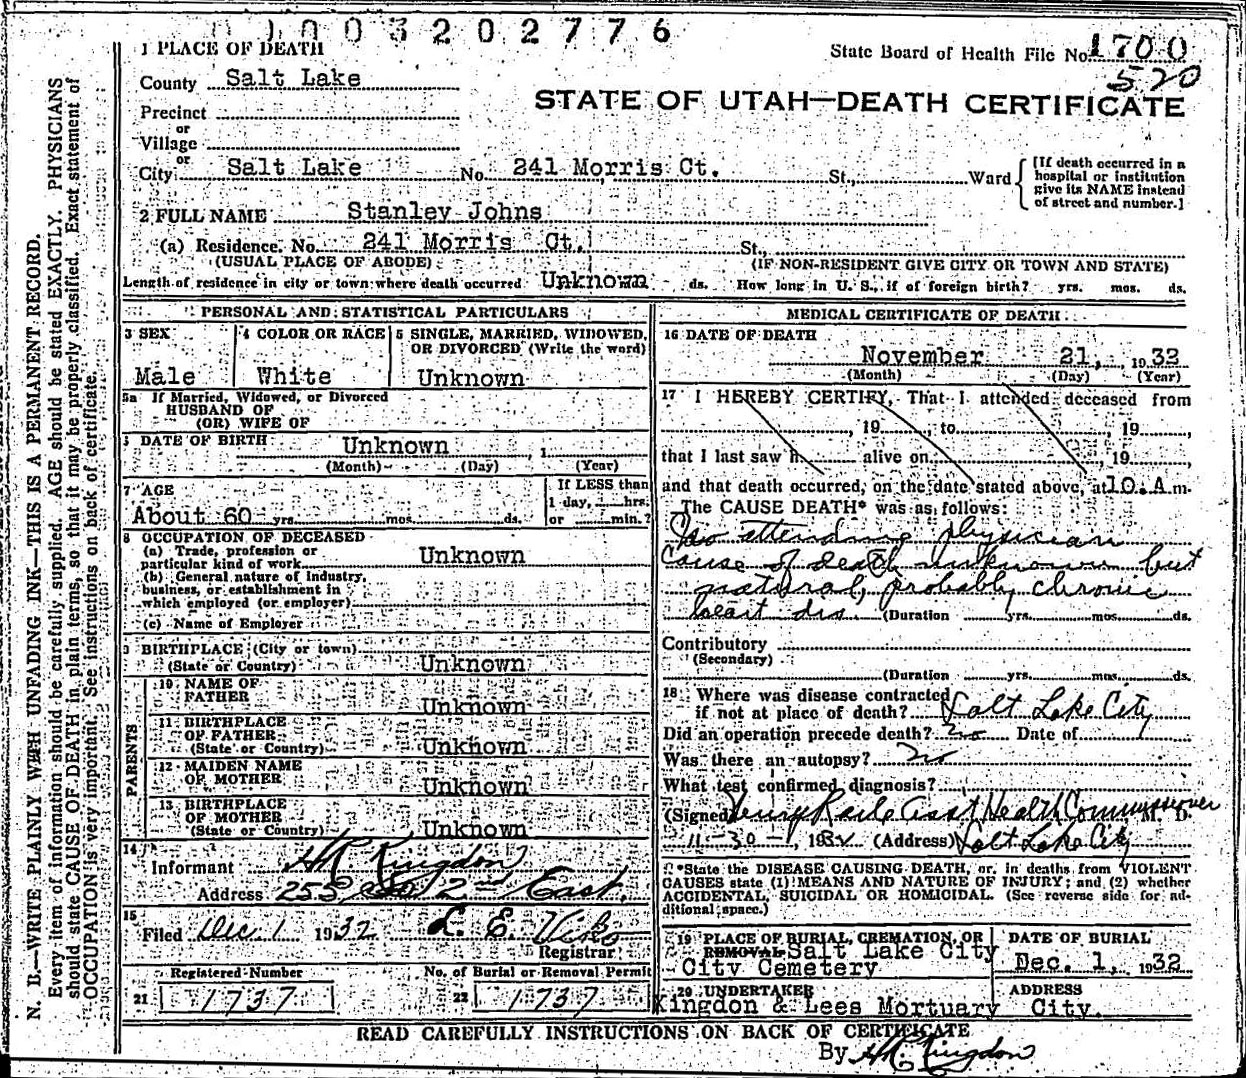 0 0 0 3 2 0 2 7 7 6
1 PLACE OF DEATH
State Board of Health File No. 1700
570
County Salt Lake
STATE OF UTAH—DEATH CERTIFICATE
Precinct
or
Village
or
City Salt Lake No. 241 Morris Ct. St., Ward
[If death occurred in a
hospital or institution
give its NAME instead
of street and number.]
2 FULL NAME Stanley Johns
(a) Residence. No. 241 Morris Ct. St.,
(USUAL PLACE OF ABODE) (IF NON-RESIDENT GIVE CITY OR TOWN AND STATE)
Length of residence in city or town where death occurred Unknown ds. How long in U. S., if of foreign birth? yrs. mos. ds.
N. B.—WRITE PLAINLY WITH UNFADING INK—THIS IS A PERMANENT RECORD.
Every item of information should be carefully supplied. AGE should be stated EXACTLY. PHYSICIANS
should state CAUSE OF DEATH in plain terms, so that it may be properly classified. Exact statement of
OCCUPATION is very important. See instructions on back of certificate.
PERSONAL AND STATISTICAL PARTICULARS
3 SEX
Male
4 COLOR OR RACE
White
5 SINGLE, MARRIED, WIDOWED,
OR DIVORCED (Write the word)
Unknown
5a If Married, Widowed, or Divorced
HUSBAND OF
(OR) WIFE OF
DATE OF BIRTH Unknown , 1
(Month) (Day) (Year)
7 AGE
About 60 yrs. mos. ds.
If LESS than
1 day, hrs.
or min.?
8 OCCUPATION OF DECEASED
(a) Trade, profession or
particular kind of work Unknown
(b) General nature of industry,
business, or establishment in
which employed (or employer)
(c) Name of Employer
9 BIRTHPLACE (City or town)
(State or Country) Unknown
PARENTS
10 NAME OF
FATHER Unknown
11 BIRTHPLACE
OF FATHER
(State or Country) Unknown
12 MAIDEN NAME
OF MOTHER Unknown
13 BIRTHPLACE
OF MOTHER
(State or Country) Unknown
14
Informant HR Kingdon
Address 255 So 2nd East.
15
Filed Dec 1 1932 L. E. Viko
Registrar
Registered Number
21 1737
No. of Burial or Removal Permit
22 1737
MEDICAL CERTIFICATE OF DEATH
16 DATE OF DEATH
November 21, 1932
(Month) (Day) (Year)
17 I HEREBY CERTIFY, That I attended deceased from
, 19 , to , 19 ,
that I last saw h alive on , 19 ,
and that death occurred, on the date stated above, at 10. A m.
The CAUSE DEATH* was as follows:
No attending physician
Cause of death unknown but
natural, probably chronic
heart dis. (Duration yrs. mos. ds.
Contributory
(Secondary)
(Duration yrs. mos. ds.
18 Where was disease contracted
if not at place of death? Salt Lake City
Did an operation precede death? no Date of
Was there an autopsy? no
What test confirmed diagnosis?
(Signed) Henry Raile Asst Health Commissioner M. D.
11-30-, 1932 (Address) Salt Lake City
*State the DISEASE CAUSING DEATH, or, in deaths from VIOLENT
CAUSES state (1) MEANS AND NATURE OF INJURY; and (2) whether
ACCIDENTAL, SUICIDAL OR HOMICIDAL. (See reverse side for ad-
ditional space.)
19 PLACE OF BURIAL, CREMATION, OR
REMOVAL Salt Lake City
City Cemetery
DATE OF BURIAL
Dec. 1, 1932
20 UNDERTAKER
Kingdon & Lees Mortuary
ADDRESS
City.
READ CAREFULLY INSTRUCTIONS ON BACK OF CERTIFICATE
By HR. Kingdon